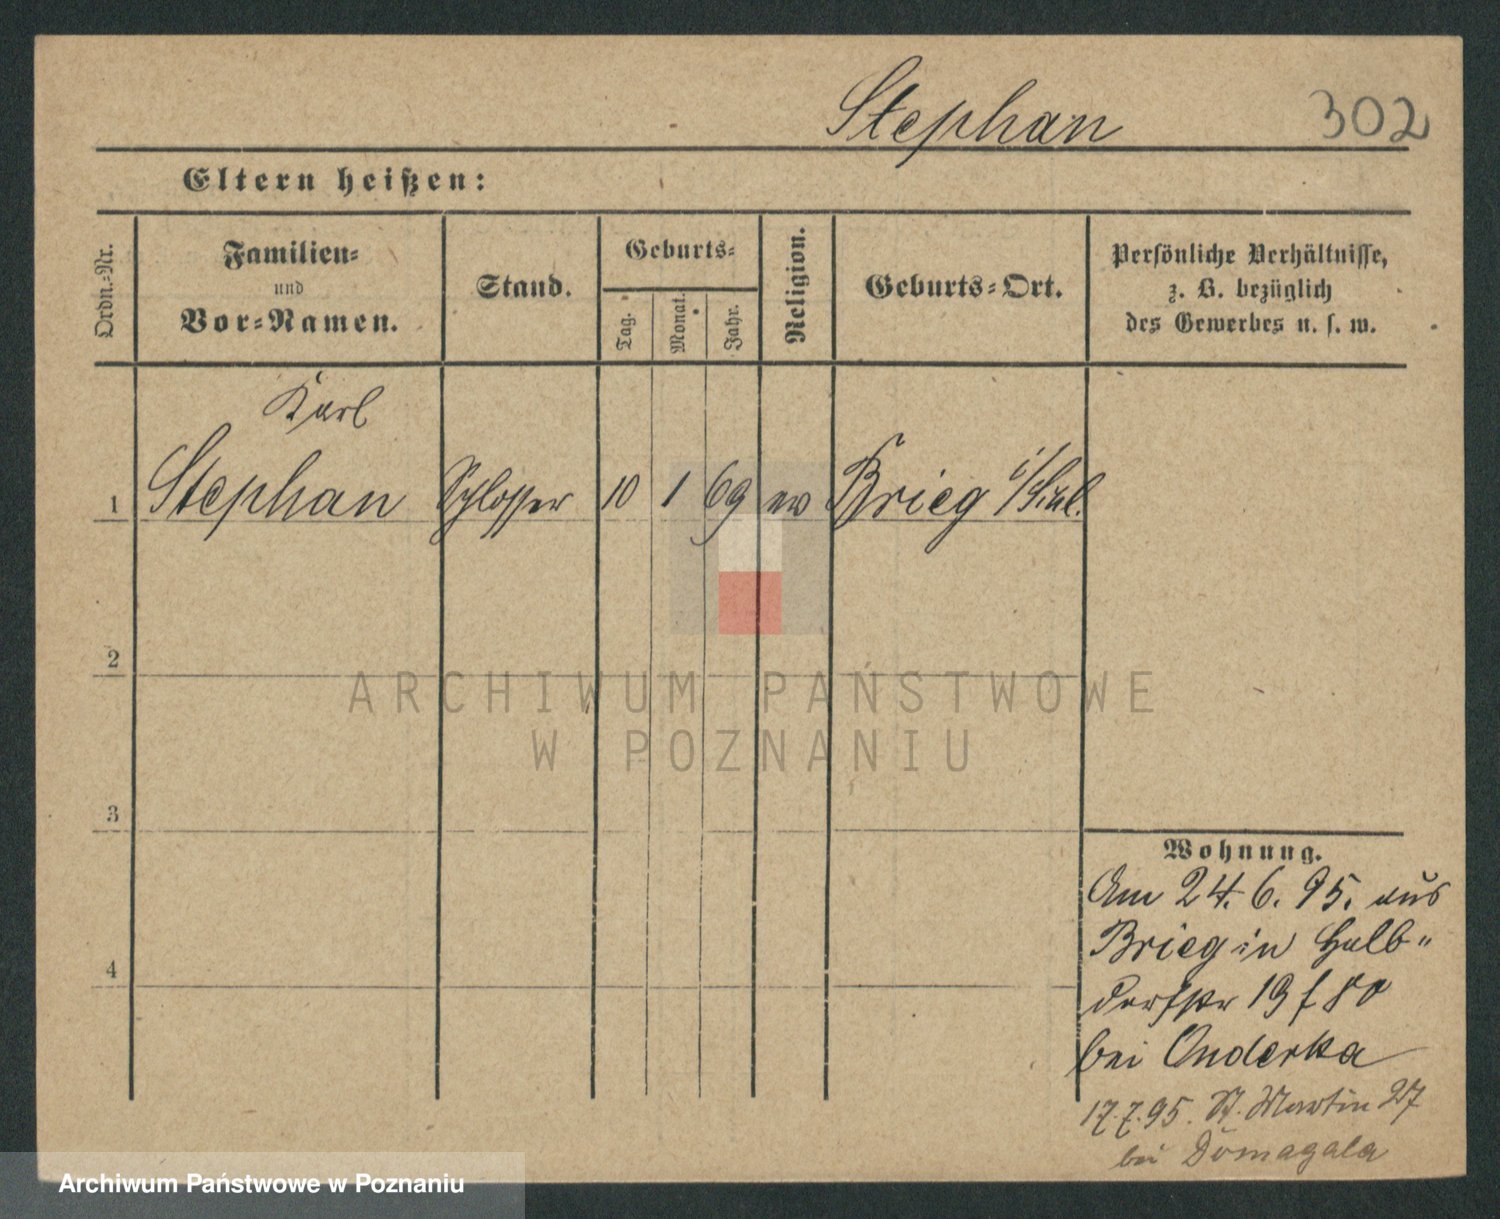 Stephan 302
Eltern heißen:
Ordn.-Nr.
Familien-
und
Vor-Namen.
Stand.
Geburts-
Tag.
Monat.
Jahr.
Religion.
Geburts-Ort.
Persönliche Verhältnisse,
z. B. bezüglich
des Gewerbes u. s. w.
Karl
1 Stephan Schlosser 10 1 69 ev Brieg i/Schl.
2
ARCHIWUM PAŃSTWOWE
W POZNANIU
3
Wohnung.
Am 24. 6. 95. aus
Brieg in Halb-
4
dorfstr 19
bei Onderka
17.7.95. St. Martin 27
bei Domagala
Archiwum Państwowe w Poznaniu